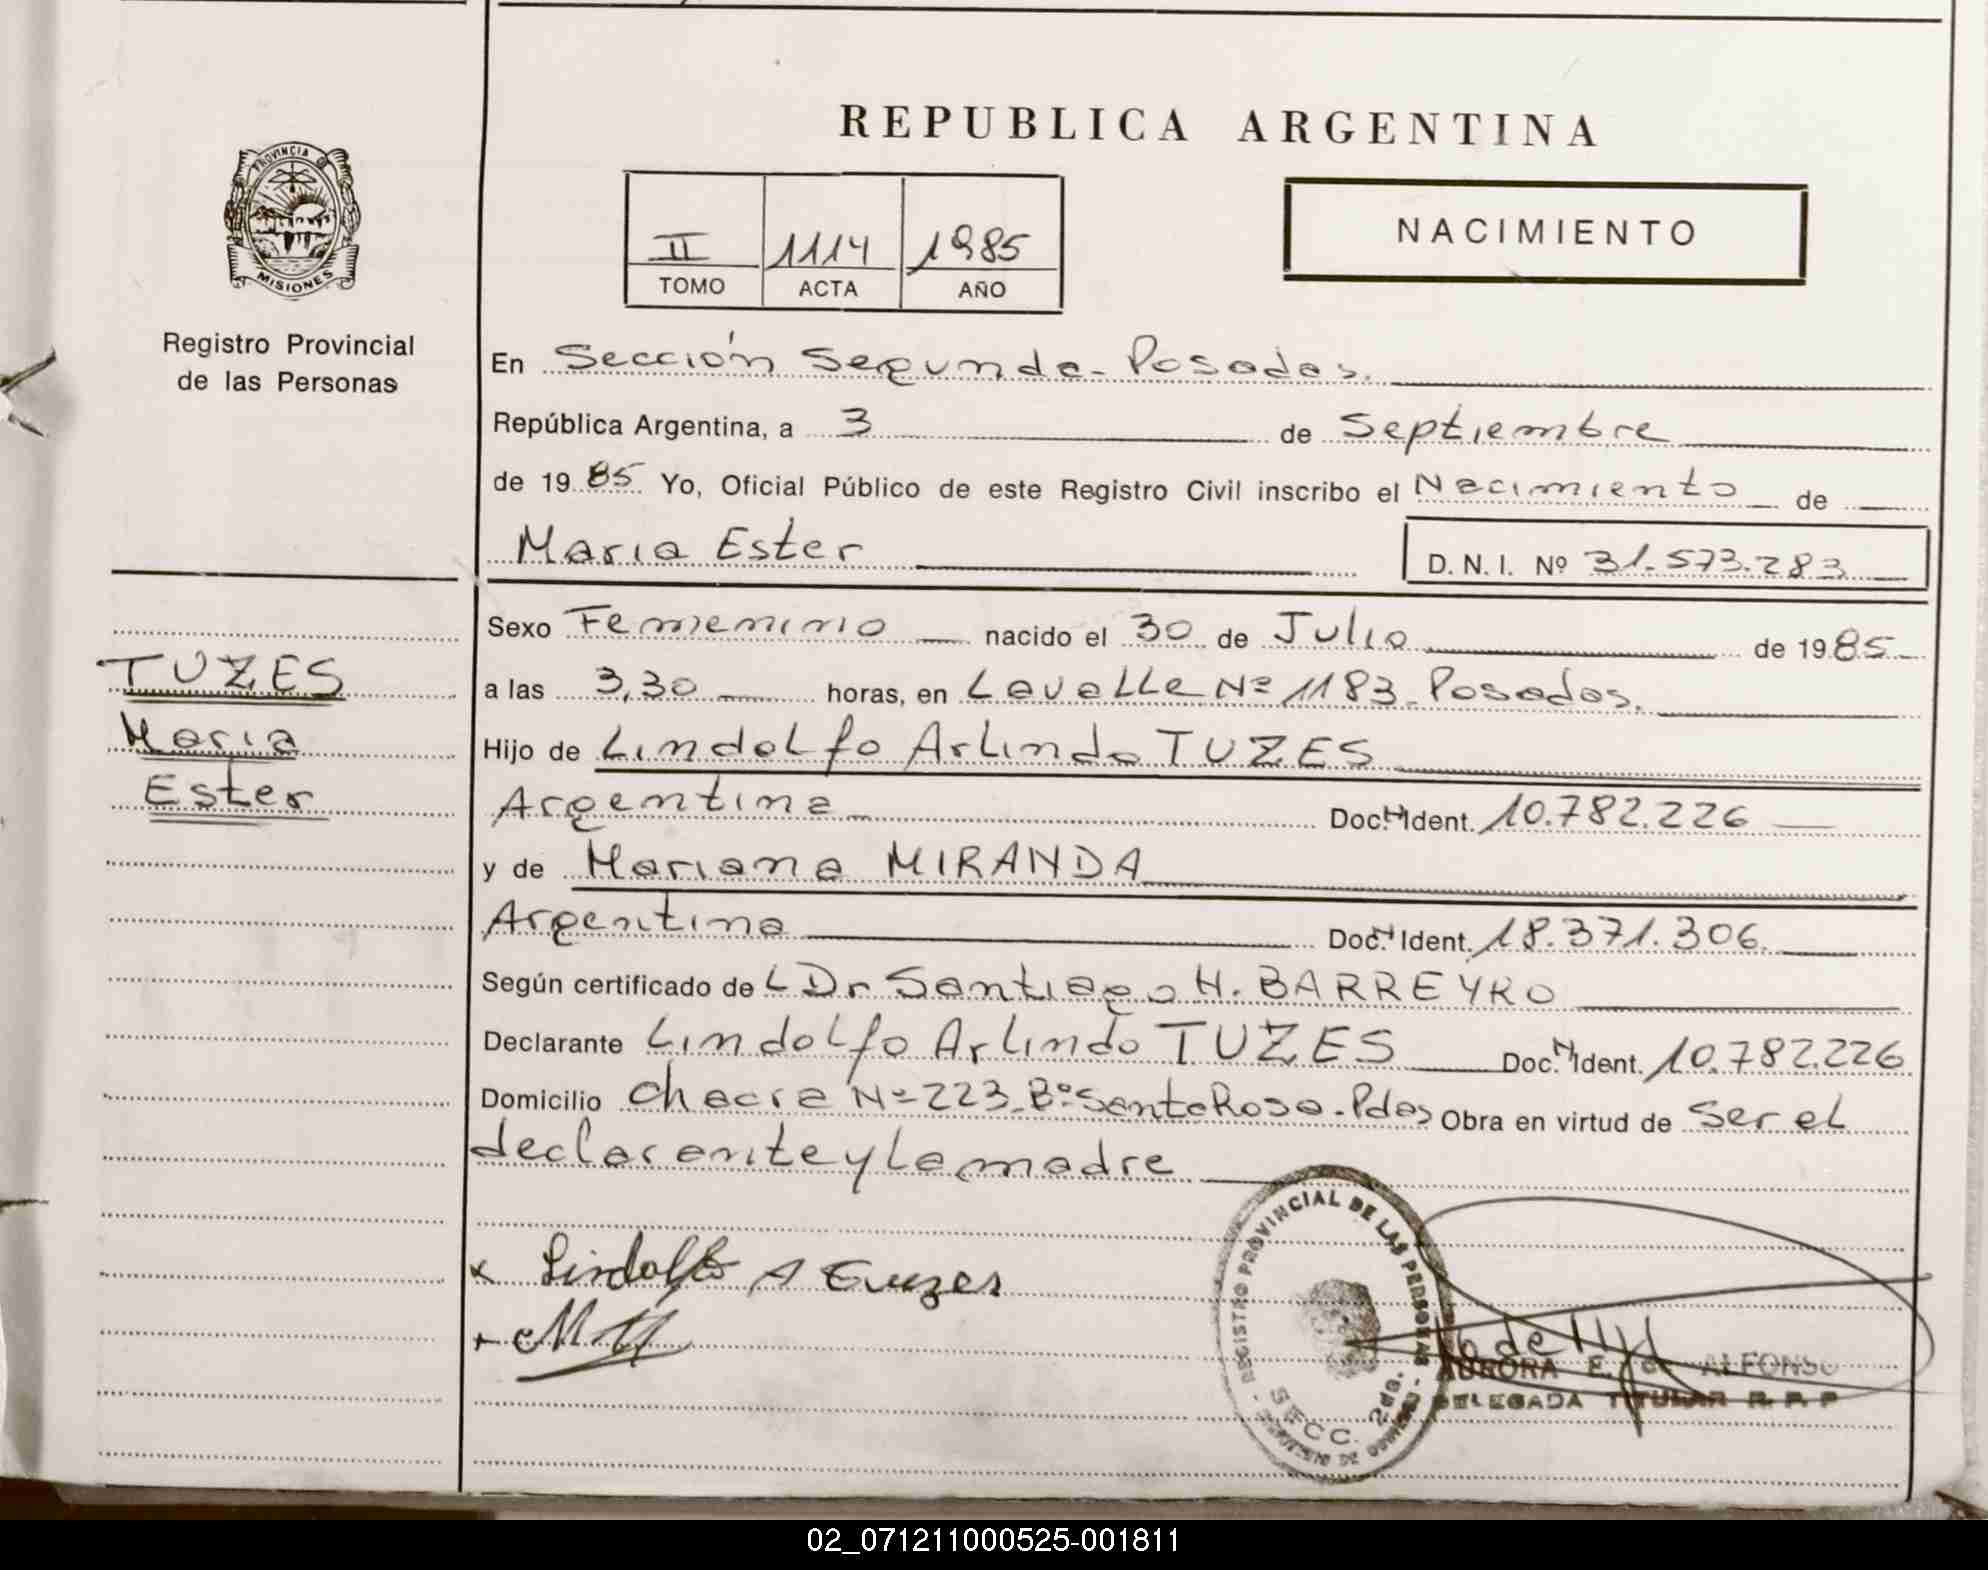 REPUBLICA ARGENTINA
PROVINCIA D
MISIONES
Registro Provincial
de las Personas
II 1114 1985
TOMO ACTA AÑO
NACIMIENTO
En Sección Segunda - Posadas.
República Argentina, a 3 de Septiembre
de 1985 Yo, Oficial Público de este Registro Civil inscribo el Nacimiento de
Maria Ester
D. N. I. Nº 31.573.283
TUZES
Maria
Ester
Sexo Femenino nacido el 30 de Julio de 1985
a las 3,30 horas, en Lavalle Nº 1183 - Posadas.
Hijo de Lindolfo Arlindo TUZES
Argentina Doc. N Ident. 10.782.226
y de Mariana MIRANDA
Argentina Doc. N Ident. 18.371.306.
Según certificado de L Dr Santiago H. BARREYRO
Declarante Lindolfo Arlindo TUZES Doc. N Ident. 10.782.226
Domicilio Chacra Nº 223 - Bº Santa Rosa - Pdas Obra en virtud de ser el
declarante y la madre
x Lindolfo A Tuzes
REGISTRO PROVINCIAL DE LAS PERSONAS
SECC. 2da.
AURORA E. G. de ALFONSO
DELEGADA TITULAR R. P. P
02_071211000525-001811